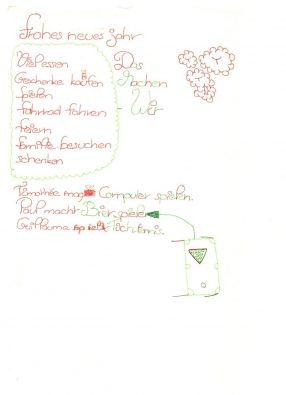 Frohes neues jahr
Viel essen
Geschenke kaufen
feiern
fahrrad fahren
feiern
familie besuchen
schenken
Das
Machen
Wir
Timothée mag Computer spielen.
Paul macht Bier spiele
Guillaume spielt Tischtennis.